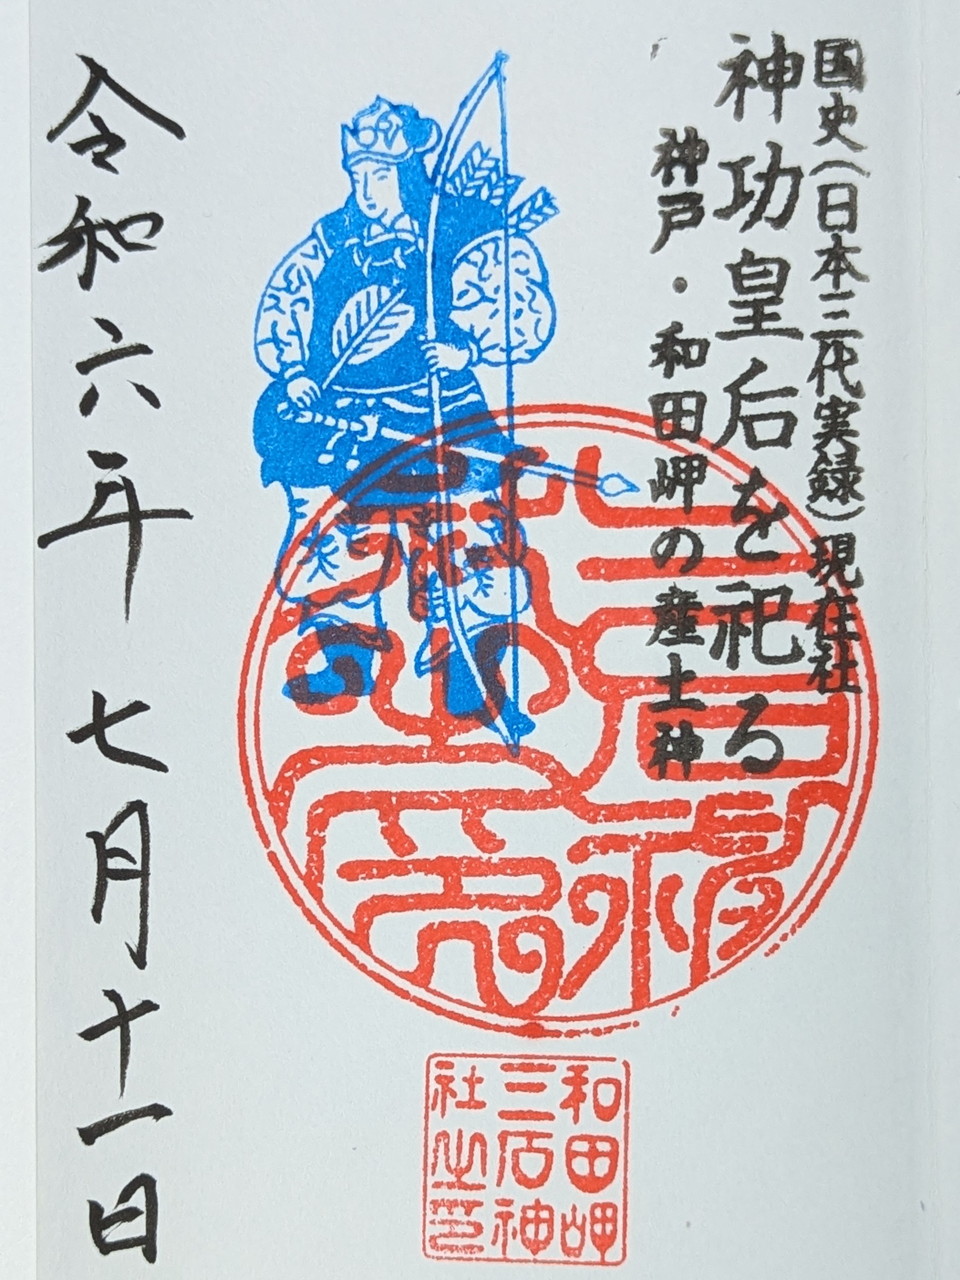 国史(日本三代実録)現在社
神功皇后を祀る
神戸・和田岬の産土神
令和六年 七月十一日
三石神社之印
和田岬
三石神
社之印